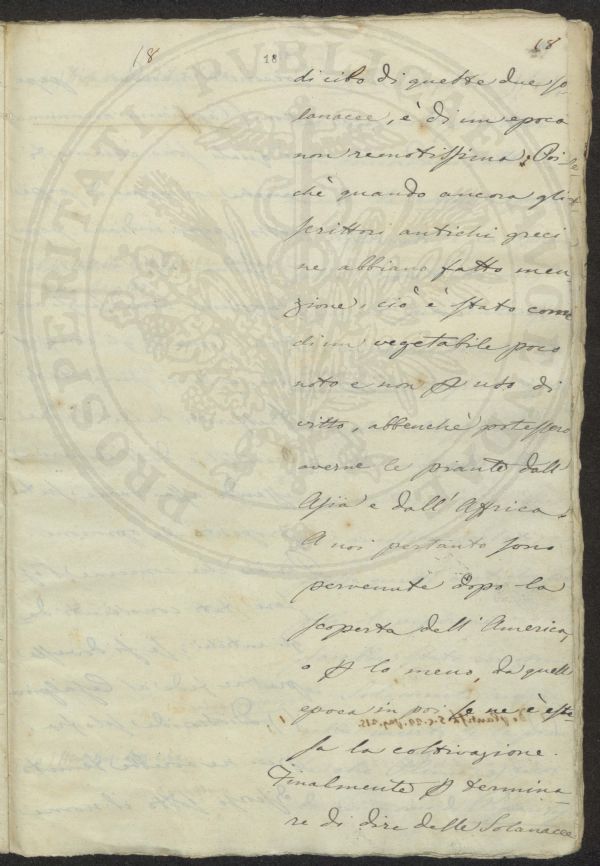 18 18 18
di cibo di queste due so-
lanacee, è di un epoca
non remotissima. Poi-
chè quando ancora gli
scrittori antichi greci
ne abbiano fatto men-
zione, ciò è stato come
di un vegetabile poco
noto e non p uso di
vitto, abbenchè potessero
averne le piante dall'
Asia e dall' Affrica.
A noi pertanto sono
pervenute dopo la
scoperta dell' America,
o p lo meno, da quell'
epoca in poi se ne è este-
sa la coltivazione.
Finalmente p termina-
re di dire delle Solanacee
PROSPERITATI PVBLICAE